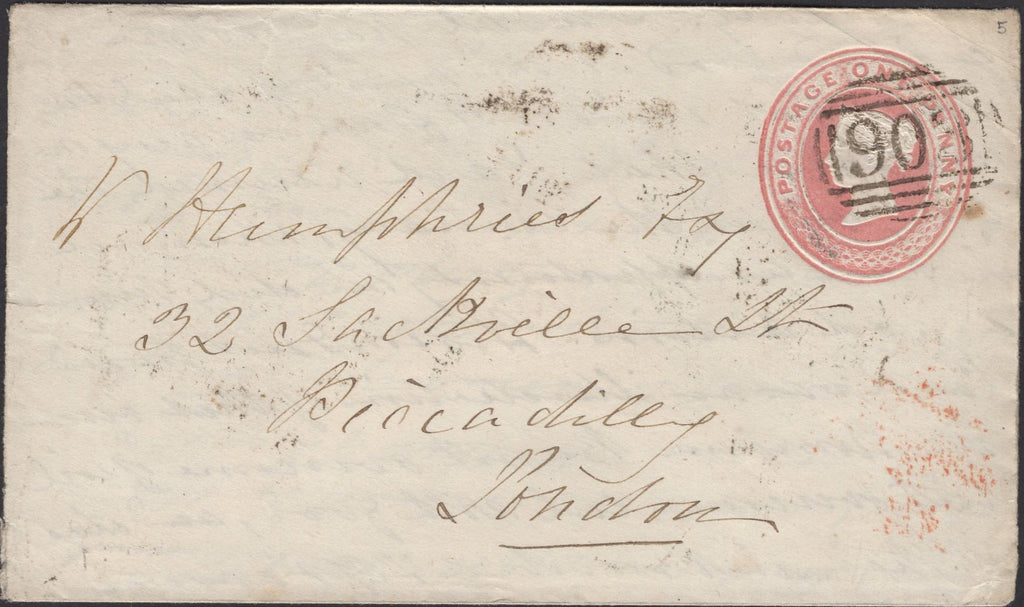 5
POSTAGE ONE PENNY
190
Humphries Esq
32 Sackville St
Piccadilly
London